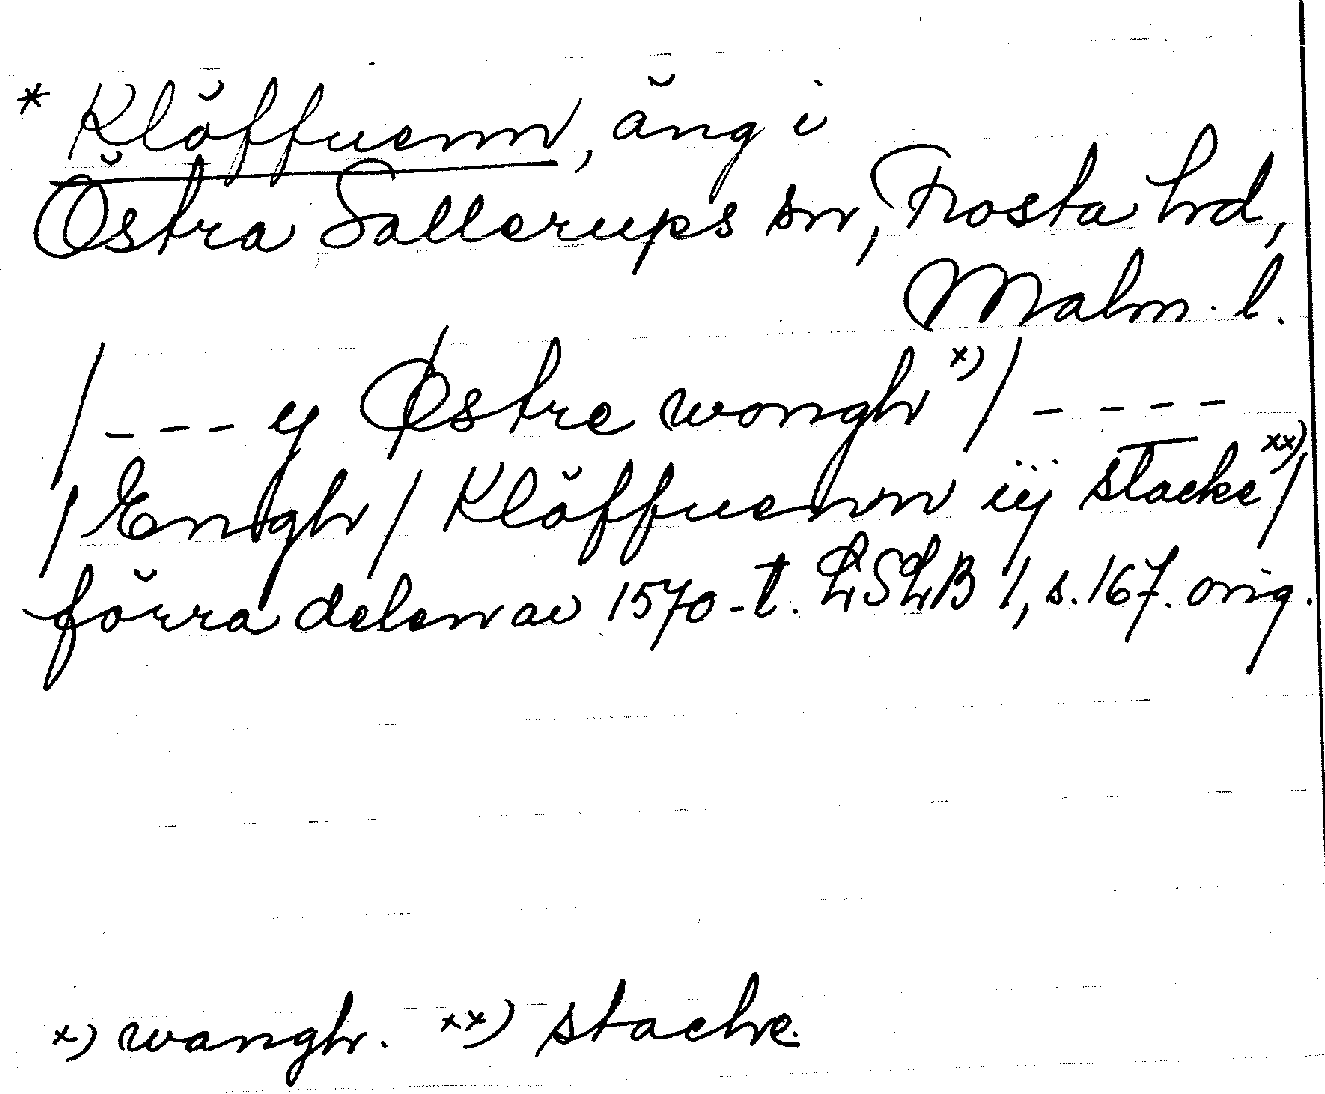 * Klöffuenn, äng i
Östra Sallerups sn, Frosta hd,
Malm. l.
/ _ _ _ y Østre wongh x) / _ _ _ _
/ Engh / Klöffuenn iij stacke xx) /
förra delen av 1570-t. LSLB 1, s. 167. orig.
x) wangh. xx) stacke.